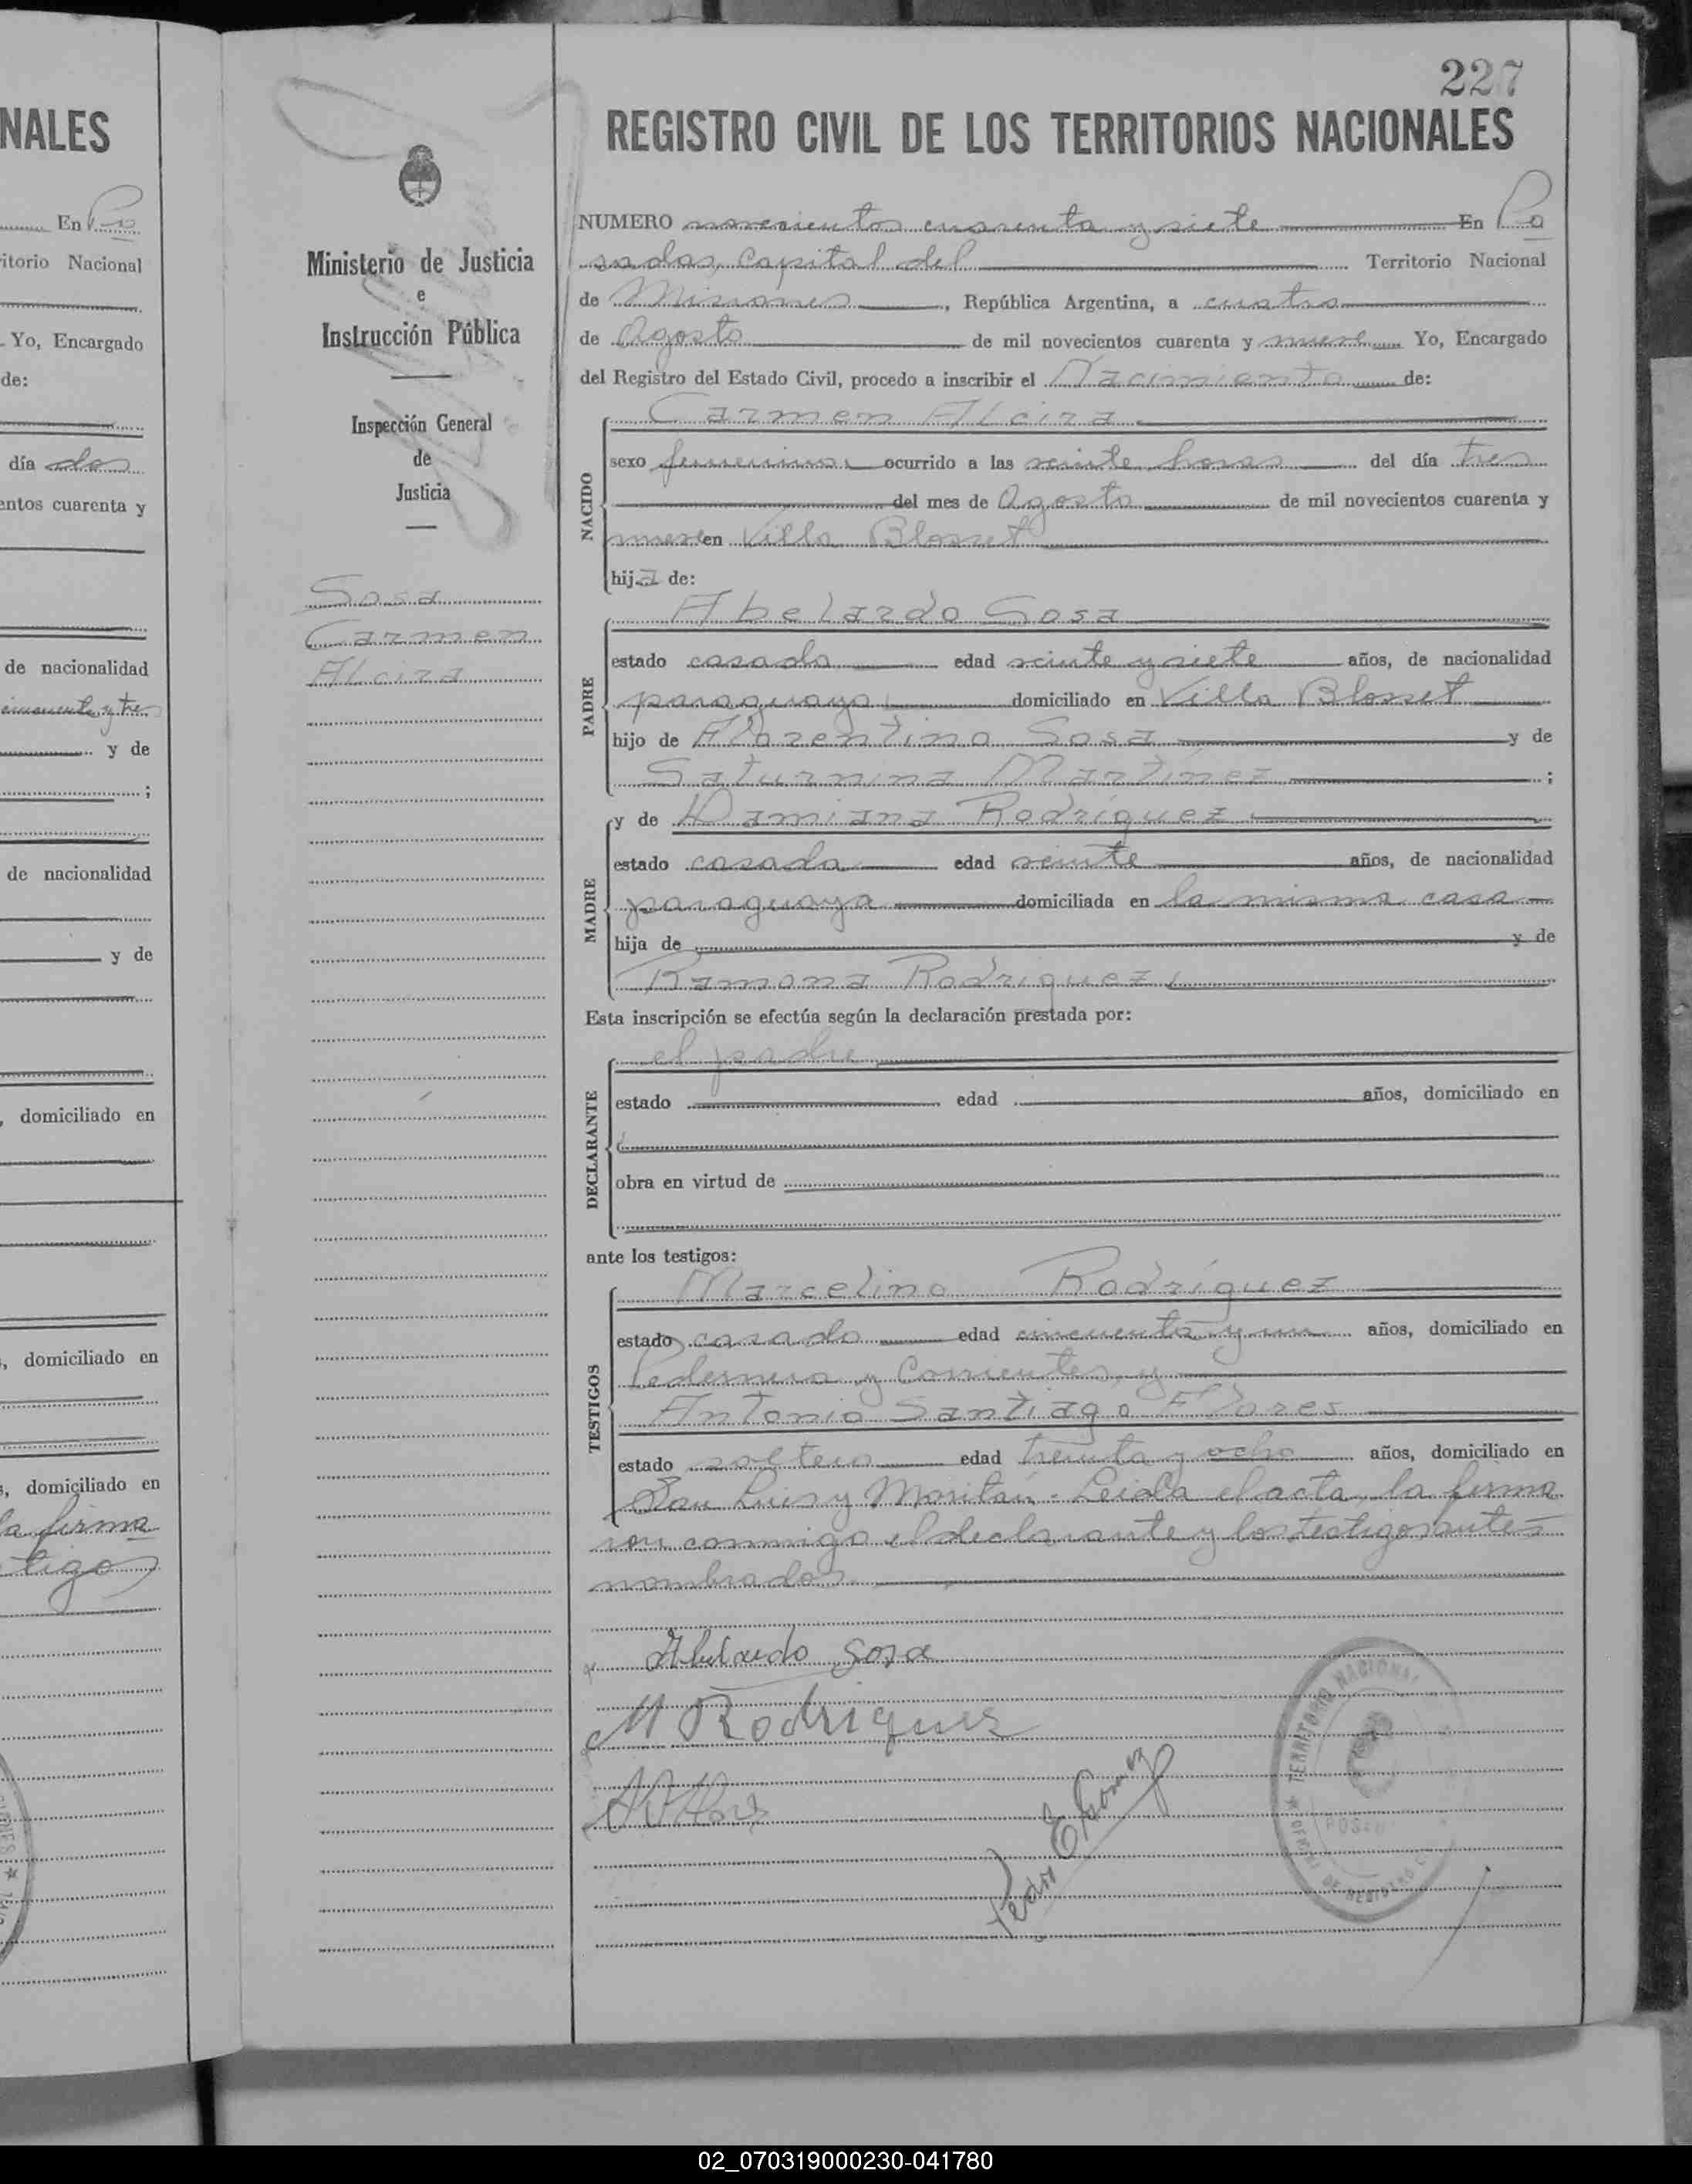 NALES
En Po
itorio Nacional
Yo, Encargado
de:
día dos
entos cuarenta y
de nacionalidad
cincuenta y tres
y de
;
de nacionalidad
y de
, domiciliado en
, domiciliado en
s, domiciliado en
la firma
tigos
Ministerio de Justicia
e
Instrucción Pública
Inspección General
de
Justicia
Sosa
Carmen
Alcira
227
REGISTRO CIVIL DE LOS TERRITORIOS NACIONALES
NUMERO novecientos cuarenta y siete En Po
sadas, Capital del Territorio Nacional
de Misiones, República Argentina, a cuatro
de Agosto de mil novecientos cuarenta y nueve Yo, Encargado
del Registro del Estado Civil, procedo a inscribir el Nacimiento de:
NACIDO
Carmen Alcira
sexo femenino ocurrido a las veinte horas del día tres
del mes de Agosto de mil novecientos cuarenta y
nueve en Villa Blosset
hija de:
PADRE
Abelardo Sosa
estado casado edad veinte y siete años, de nacionalidad
paraguaya domiciliado en Villa Blosset
hijo de Florentino Sosa y de
Saturnina Martínez ;
MADRE
y de Damiana Rodríguez
estado casada edad veinte años, de nacionalidad
paraguaya domiciliada en la misma casa
hija de y de
Ramona Rodríguez
Esta inscripción se efectúa según la declaración prestada por:
DECLARANTE
el padre
estado edad años, domiciliado en
obra en virtud de
ante los testigos:
TESTIGOS
Marcelino Rodríguez
estado casado edad cincuenta y un años, domiciliado en
Pedernera y Corrientes, y
Antonio Santiago Flores
estado soltero edad treinta y ocho años, domiciliado en
San Luis y Moritán. Leida el acta, la firma
ron conmigo el declarante y los testigos ante=
nombrados.
Abelardo Sosa
M Rodrigues
Pedro E Gomez
TERRITORIO NACIONAL
OFICINA DE REGISTRO
02_070319000230-041780